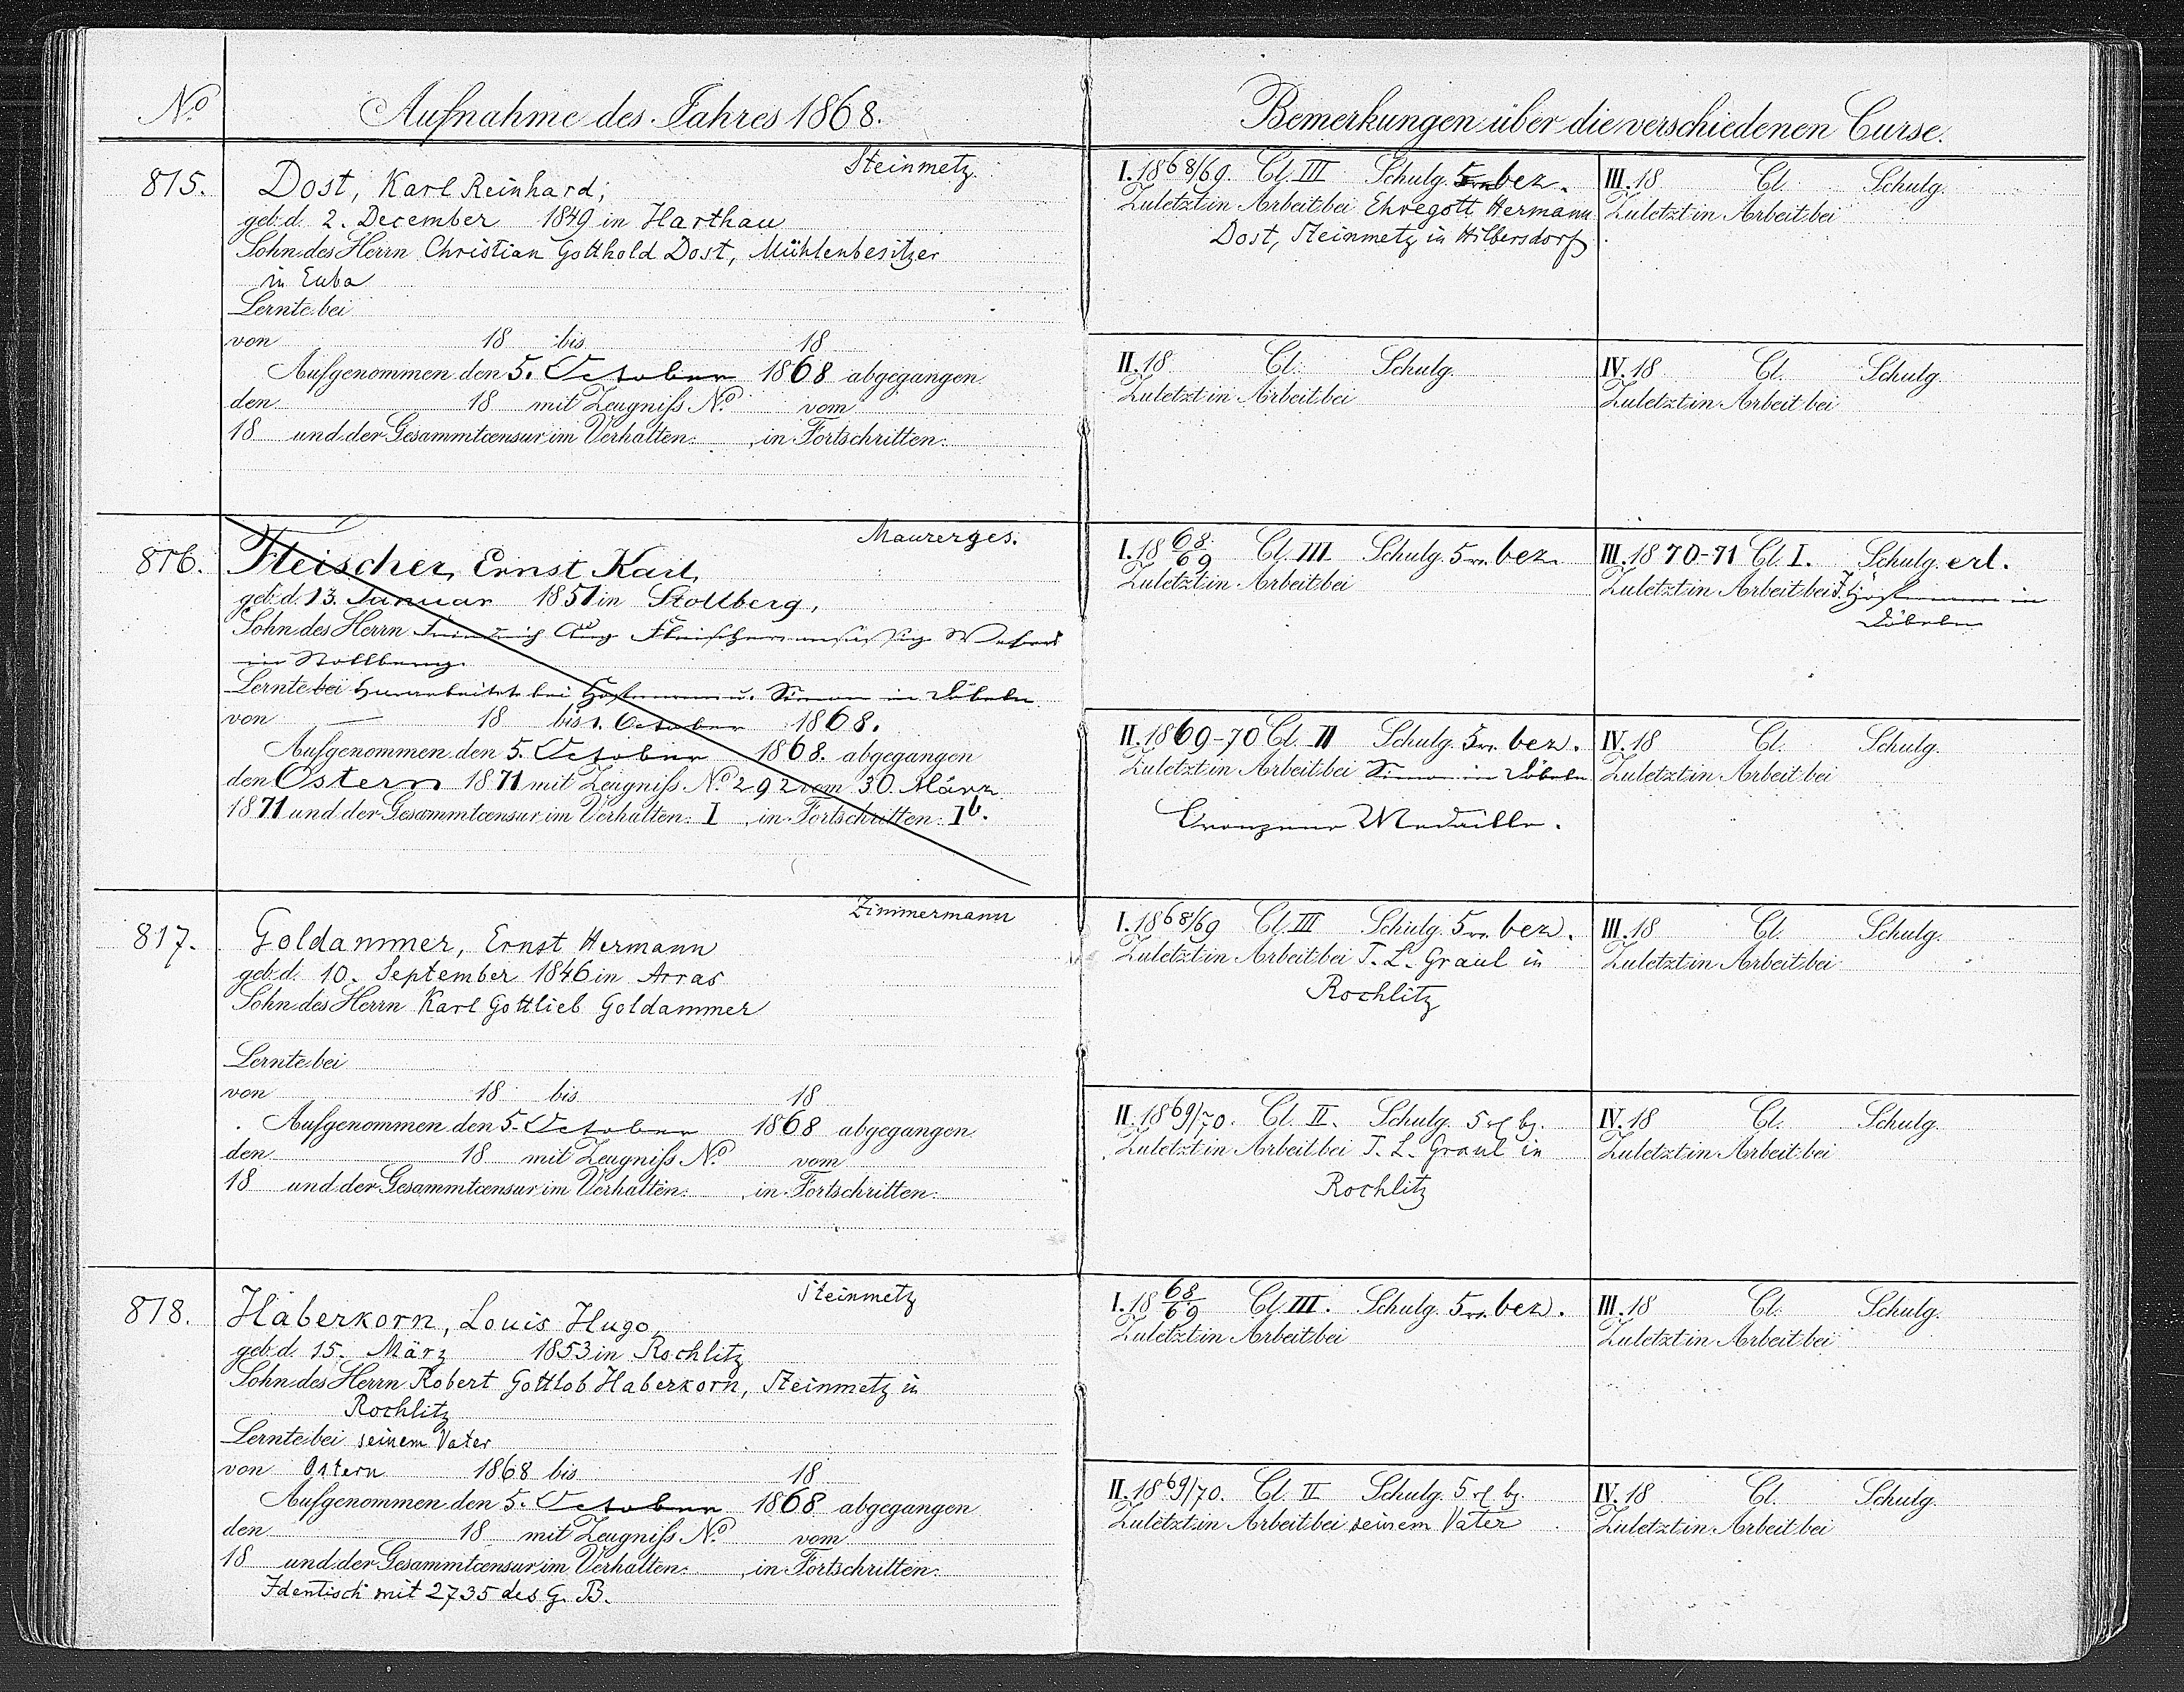 No Aufnahme des Jahres 1868.
815. Steinmetz.
Dost, Karl Reinhard,
geb. d. 2. December 1849 in Harthau
Sohn des Herrn Christian Gotthold Dost, Mühlenbesitzer
in Euba
Lernte bei
von 18 bis 18
Aufgenommen den 5. October 1868 abgegangen
den 18 mit Zeugniß No vom
18 und der Gesammtcensur im Verhalten: , in Fortschritten:
816. Maurerges.
Fleischer, Ernst Karl,
geb. d. 13. Januar 1851 in Stollberg,
Sohn des Herrn Friedrich Aug Fleischer ansässig Webers
in Stollberg.
Lernte bei bei u. Simon in Döbeln
von — 18 bis 1. October 1868.
Aufgenommen den 5. October 1868. abgegangen
den Ostern 1871 mit Zeugniß No 292 vom 30. März
1871 und der Gesammtcensur im Verhalten: I , in Fortschritten: Ib.
817. Zimmermann
Goldammer, Ernst Hermann
geb. d. 10. September 1846 in Arras
Sohn des Herrn Karl Gottlieb Goldammer
Lernte bei
von 18 bis 18
Aufgenommen den 5. October 1868 abgegangen
den 18 mit Zeugniß No vom
18 und der Gesammtcensur im Verhalten: , in Fortschritten:
818. Steinmetz
Haberkorn, Louis Hugo,
geb. d. 15. März 1853 in Rochlitz
Sohn des Herrn Robert Gottlob Haberkorn, Steinmetz in
Rochlitz
Lernte bei seinem Vater
von Ostern 1868 bis 18
Aufgenommen den 5. October 1868 abgegangen
den 18 mit Zeugniß No vom
18 und der Gesammtcensur im Verhalten: , in Fortschritten:
Identisch mit 2735 des G. B.
Bemerkungen über die verschiedenen Curse.
I. 1868/69. Cl. III Schulg. 5 bez.
Zuletzt in Arbeit bei Ehregott Hermann
Dost, Steinmetz in Hilbersdorf
III. 18 Cl. Schulg.
Zuletzt in Arbeit bei
II. 18 Cl. Schulg.
Zuletzt in Arbeit bei
IV. 18 Cl. Schulg.
Zuletzt in Arbeit bei
I. 18 68/69 Cl. III Schulg. 5 bez.
Zuletzt in Arbeit bei
III. 1870-71 Cl. I. Schulg. erl.
Zuletzt in Arbeit bei in
Döbeln
II. 1869-70 Cl. II Schulg. 5 bez.
Zuletzt in Arbeit bei Simon in Döbeln
Bronzene Medaille.
IV. 18 Cl. Schulg.
Zuletzt in Arbeit bei
I. 1868/69 Cl. III Schulg. 5 bez.
Zuletzt in Arbeit bei T. L. Graul in
Rochlitz
III. 18 Cl. Schulg.
Zuletzt in Arbeit bei
II. 1869/70. Cl. II. Schulg. 5 bz.
Zuletzt in Arbeit bei T. L. Graul in
Rochlitz
IV. 18 Cl. Schulg.
Zuletzt in Arbeit bei
I. 18 68/69 Cl. III. Schulg. 5 bez.
Zuletzt in Arbeit bei
III. 18 Cl. Schulg.
Zuletzt in Arbeit bei
II. 1869/70. Cl. II Schulg. 5 bz.
Zuletzt in Arbeit bei seinem Vater
IV. 18 Cl. Schulg.
Zuletzt in Arbeit bei